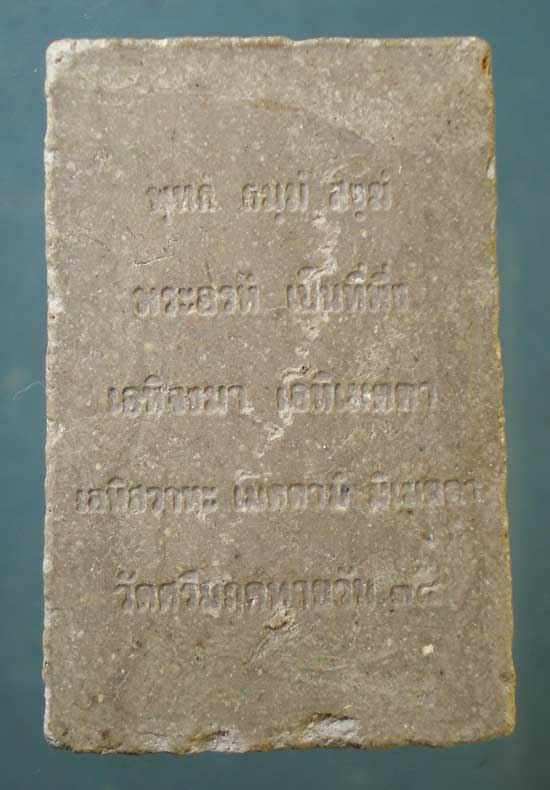 พุทธํ ธมฺมํ สงฺฆํ
พระอรหํ เป็นที่พึ่ง
เอหิจงมา เอหิเมตตา
เอหิสวาหะ เมตตาปิ มิเมตตา
วัดศรีมฤคทายวัน ๓๕